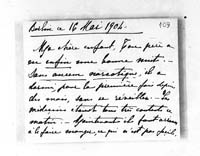 Berlin ce 16 Mai 1904.
109
Ma chère enfant, Ton père a
eu enfin une bonne nuit. -
Sans aucun narcotique, il a
dormi pour la première fois depuis
des mois, sans se réveiller. - Les
médecins étaient tous très contents ce
matin. - Maintenant il faut arriver
à le faire manger, ce qui n'est pas facile.